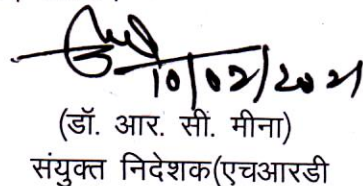 10/02/2021
(डॉ. आर. सी. मीना)
संयुक्त निदेशक(एचआरडी